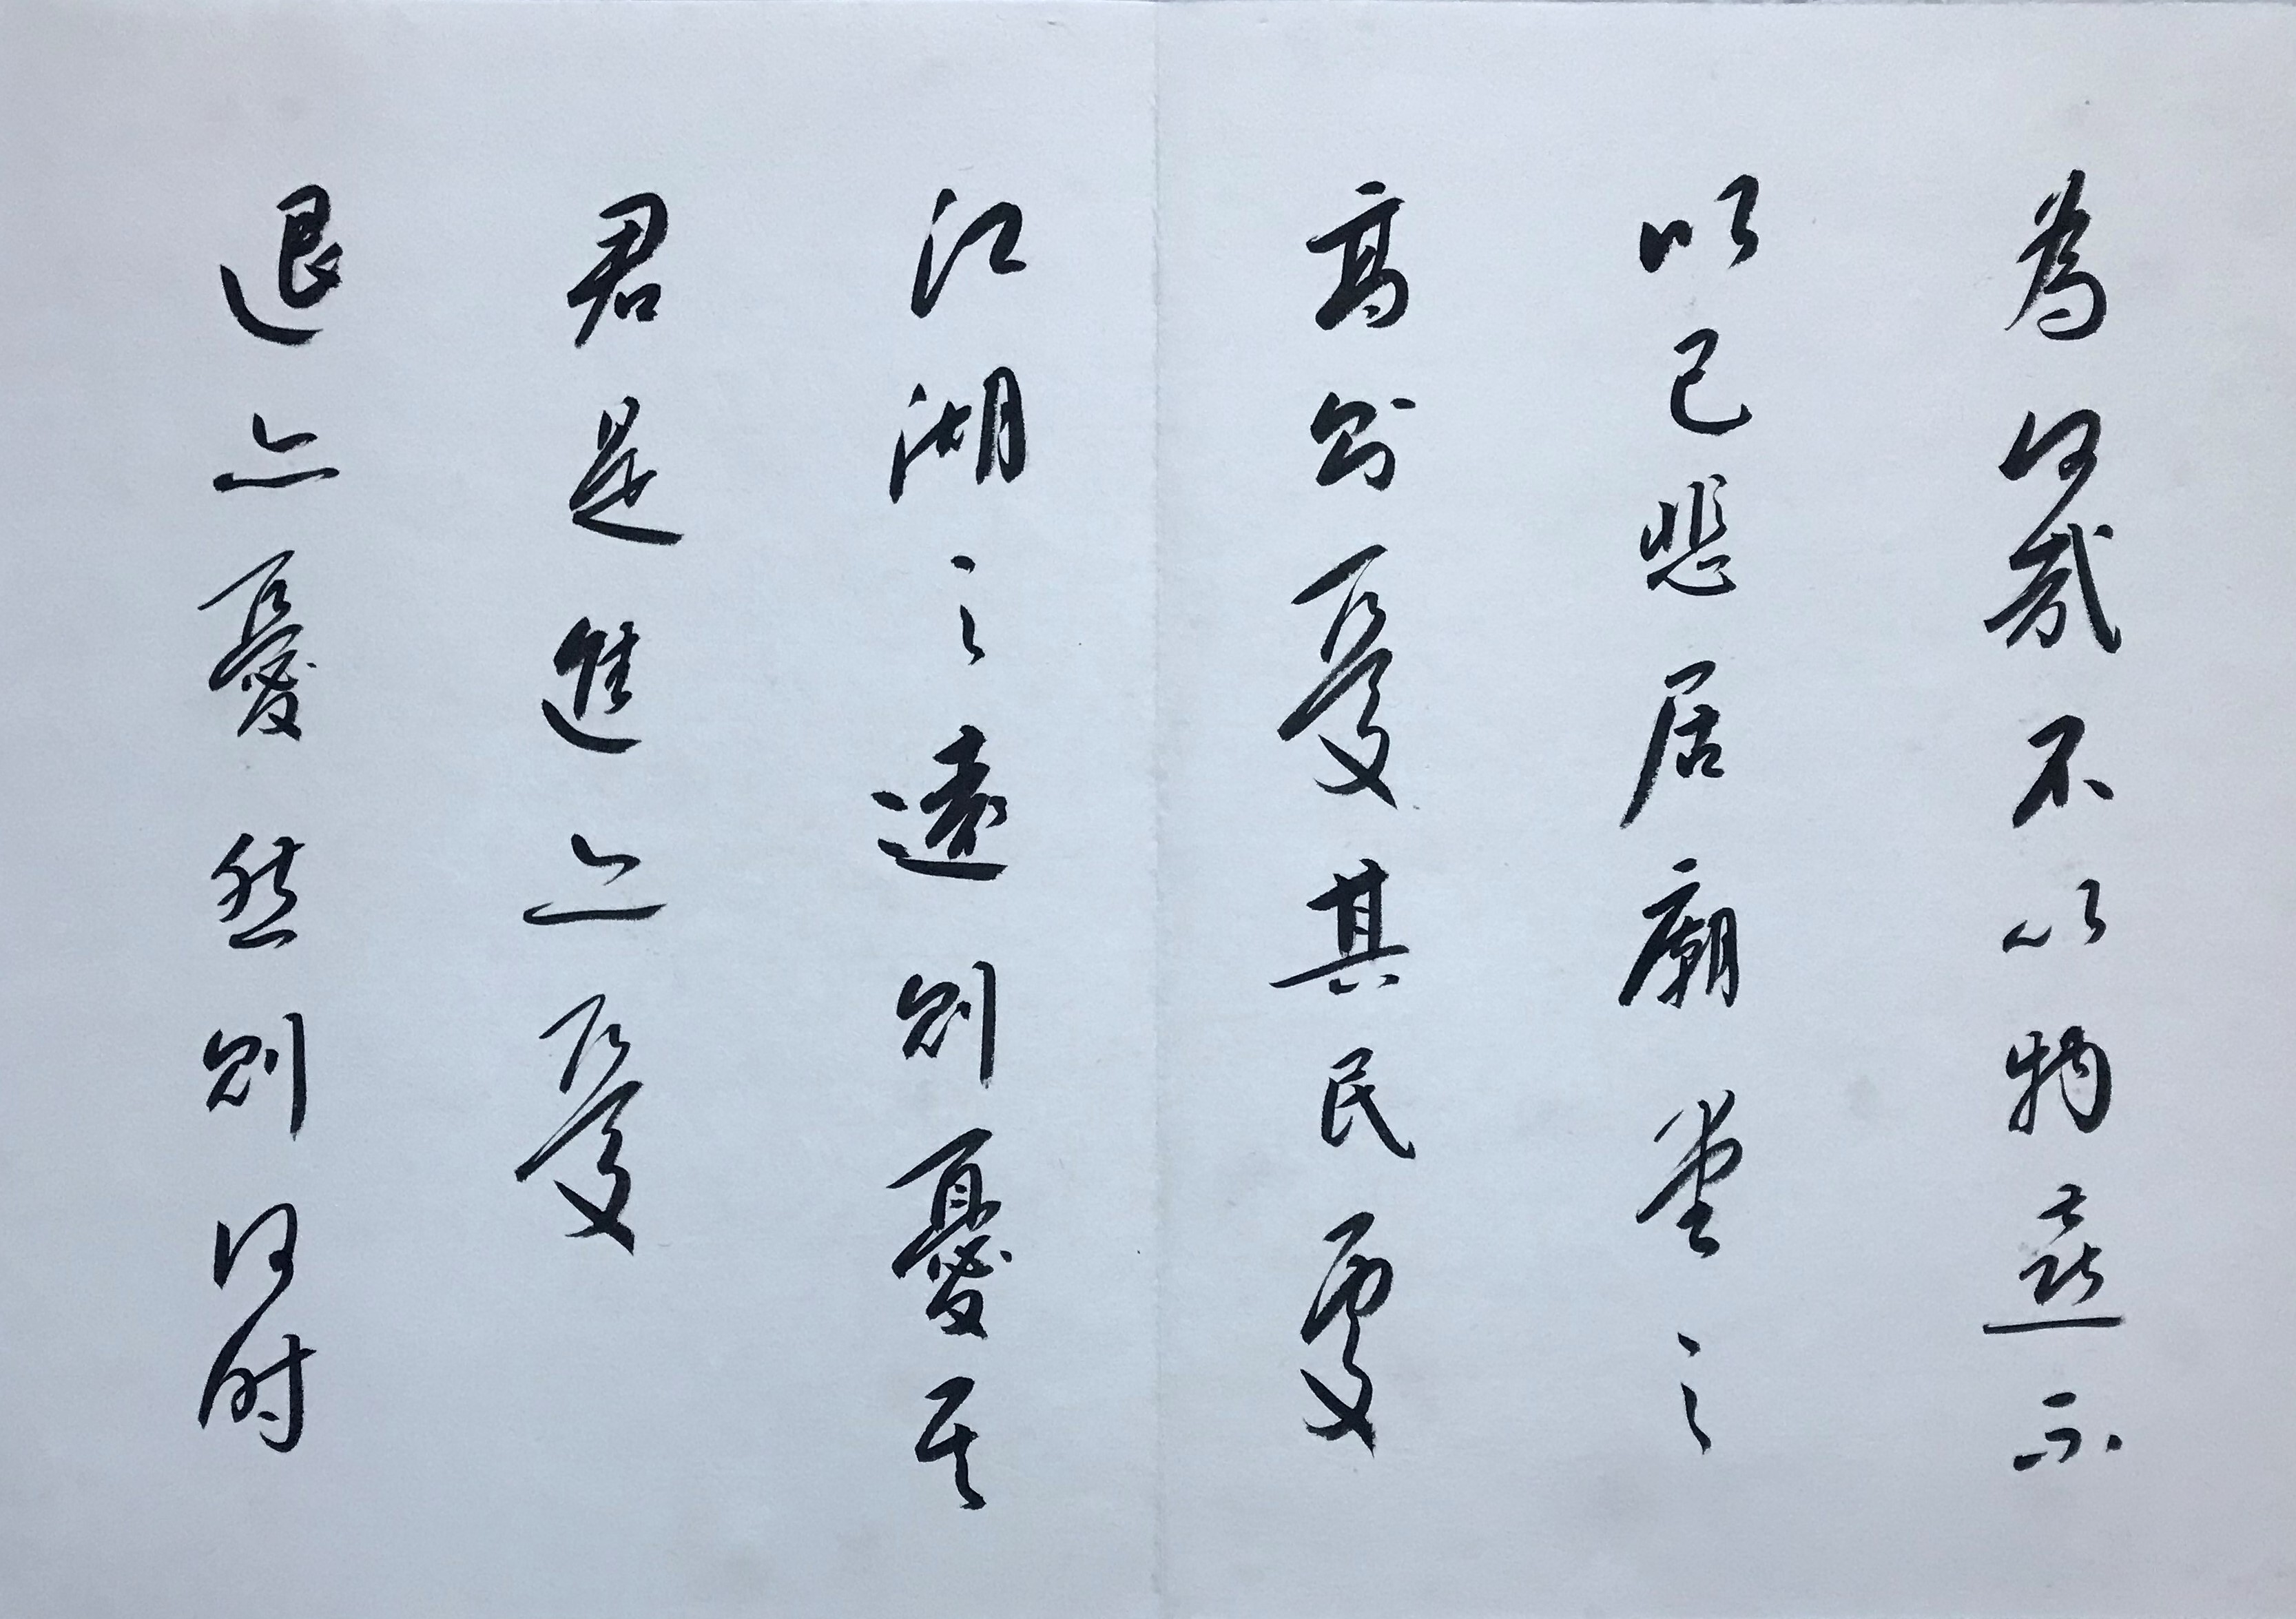 為何哉不以物喜不
以己悲居廟堂之
高則憂其民處
江湖之遠則憂其
君是進亦憂
退亦憂然則何时